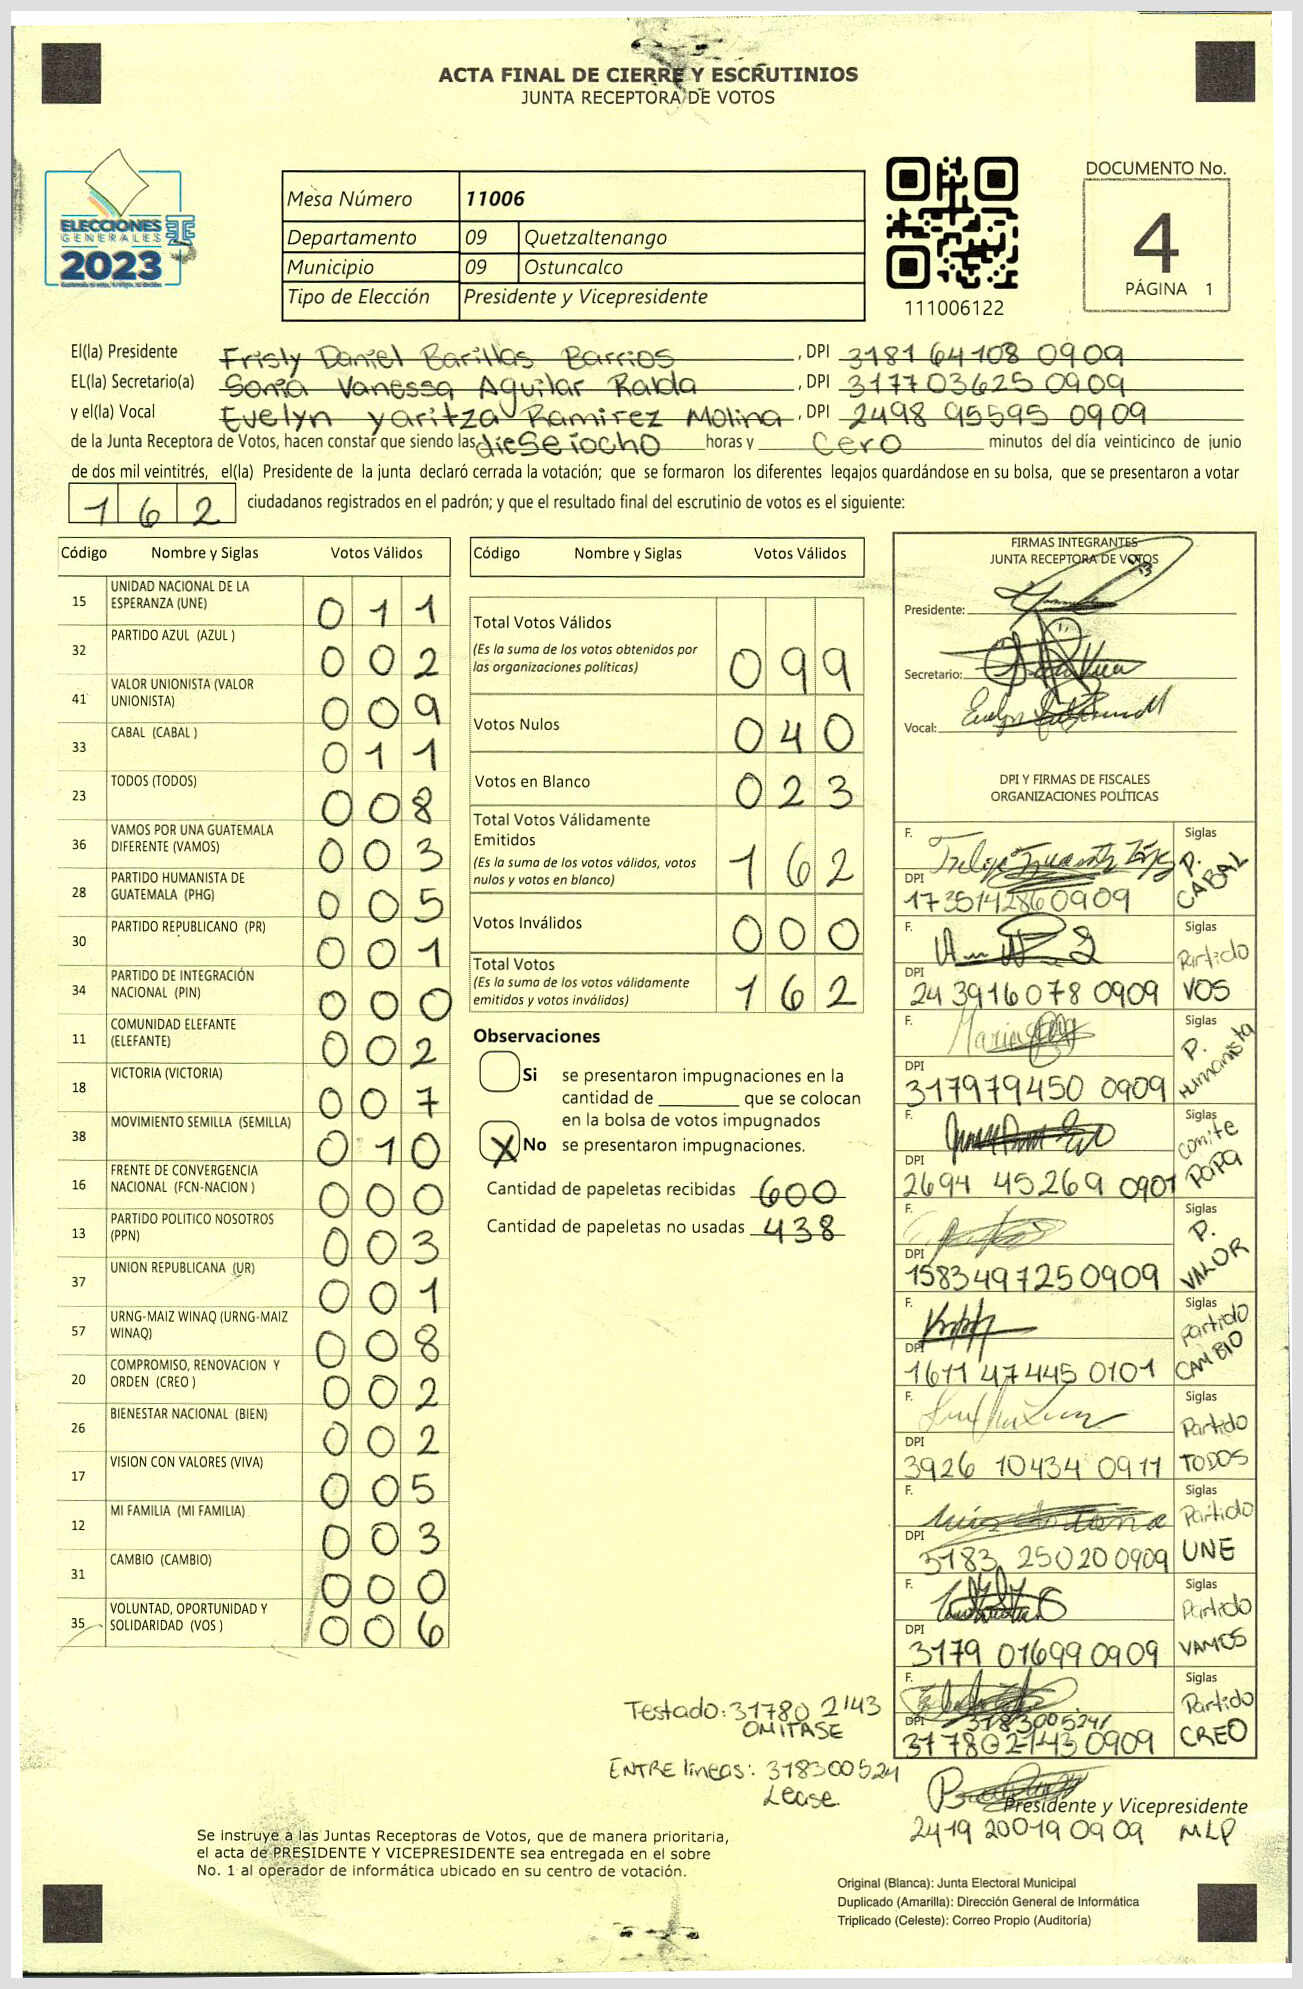 ACTA FINAL DE CIERRE Y ESCRUTINIOS
JUNTA RECEPTORA DE VOTOS
ELECCIONES
GENERALES
2023
Mesa Número 11006
Departamento 09 Quetzaltenango
Municipio 09 Ostuncalco
Tipo de Elección Presidente y Vicepresidente
111006122
DOCUMENTO No.
4
PÁGINA 1
El(la) Presidente Frisly Daniel Barillas Barrios, DPI 3181 64108 0909
EL(la) Secretario(a) Sonia Vanessa Aguilar Ralda, DPI 3177 03625 0909
y el(la) Vocal Evelyn Yaritza Ramirez Molina, DPI 2498 95595 0909
de la Junta Receptora de Votos, hacen constar que siendo las dieseiocho horas y cero minutos del día veinticinco de junio
de dos mil veintitrés, el(la) Presidente de la junta declaró cerrada la votación; que se formaron los diferentes legajos guardándose en su bolsa, que se presentaron a votar
162 ciudadanos registrados en el padrón; y que el resultado final del escrutinio de votos es el siguiente:
Código Nombre y Siglas Votos Válidos
15 UNIDAD NACIONAL DE LA ESPERANZA (UNE) 011
32 PARTIDO AZUL (AZUL ) 002
41 VALOR UNIONISTA (VALOR UNIONISTA) 009
33 CABAL (CABAL ) 011
23 TODOS (TODOS) 008
36 VAMOS POR UNA GUATEMALA DIFERENTE (VAMOS) 003
28 PARTIDO HUMANISTA DE GUATEMALA (PHG) 005
30 PARTIDO REPUBLICANO (PR) 001
34 PARTIDO DE INTEGRACIÓN NACIONAL (PIN) 000
11 COMUNIDAD ELEFANTE (ELEFANTE) 002
18 VICTORIA (VICTORIA) 007
38 MOVIMIENTO SEMILLA (SEMILLA) 010
16 FRENTE DE CONVERGENCIA NACIONAL (FCN-NACION ) 000
13 PARTIDO POLITICO NOSOTROS (PPN) 003
37 UNION REPUBLICANA (UR) 001
57 URNG-MAIZ WINAQ (URNG-MAIZ WINAQ) 008
20 COMPROMISO, RENOVACION Y ORDEN (CREO ) 002
26 BIENESTAR NACIONAL (BIEN) 002
17 VISION CON VALORES (VIVA) 005
12 MI FAMILIA (MI FAMILIA) 003
31 CAMBIO (CAMBIO) 000
35 VOLUNTAD, OPORTUNIDAD Y SOLIDARIDAD (VOS ) 006
Código Nombre y Siglas Votos Válidos
Total Votos Válidos 099
(Es la suma de los votos obtenidos por
las organizaciones políticas)
Votos Nulos 040
Votos en Blanco 023
Total Votos Válidamente
Emitidos 162
(Es la suma de los votos válidos, votos
nulos y votos en blanco)
Votos Inválidos 000
Total Votos 162
(Es la suma de los votos válidamente
emitidos y votos inválidos)
Observaciones
Si se presentaron impugnaciones en la
cantidad de ________ que se colocan
en la bolsa de votos impugnados
X No se presentaron impugnaciones.
Cantidad de papeletas recibidas 600
Cantidad de papeletas no usadas 438
FIRMAS INTEGRANTES
JUNTA RECEPTORA DE VOTOS
Presidente:
Secretario:
Vocal:
DPI Y FIRMAS DE FISCALES
ORGANIZACIONES POLÍTICAS
F. Siglas P. CABAL
DPI 1735142860909
F. Siglas Partido VOS
DPI 24 3916078 0909
F. Maria Siglas P. Humanista
DPI 317979450 0909
F. Siglas comite PAPA
DPI 2694 45269 0901
F. Siglas P. VALOR
DPI 1583497250909
F. Siglas Partido CAMBIO
DPI 1611 47445 0101
F. Siglas Partido TODOS
DPI 3926 10434 0911
F. Siglas Partido UNE
DPI 3183 25020 0909
F. Siglas Partido VAMOS
DPI 3179 01699 0909
F. Siglas Partido CREO
DPI 318300524/
3178021430909
Testado: 31780 2143
OMITASE
ENTRE lineas: 318300524
Lease.
Presidente y Vicepresidente
2419 20019 0909 MLP
Se instruye a las Juntas Receptoras de Votos, que de manera prioritaria,
el acta de PRESIDENTE Y VICEPRESIDENTE sea entregada en el sobre
No. 1 al operador de informática ubicado en su centro de votación.
Original (Blanca): Junta Electoral Municipal
Duplicado (Amarilla): Dirección General de Informática
Triplicado (Celeste): Correo Propio (Auditoría)